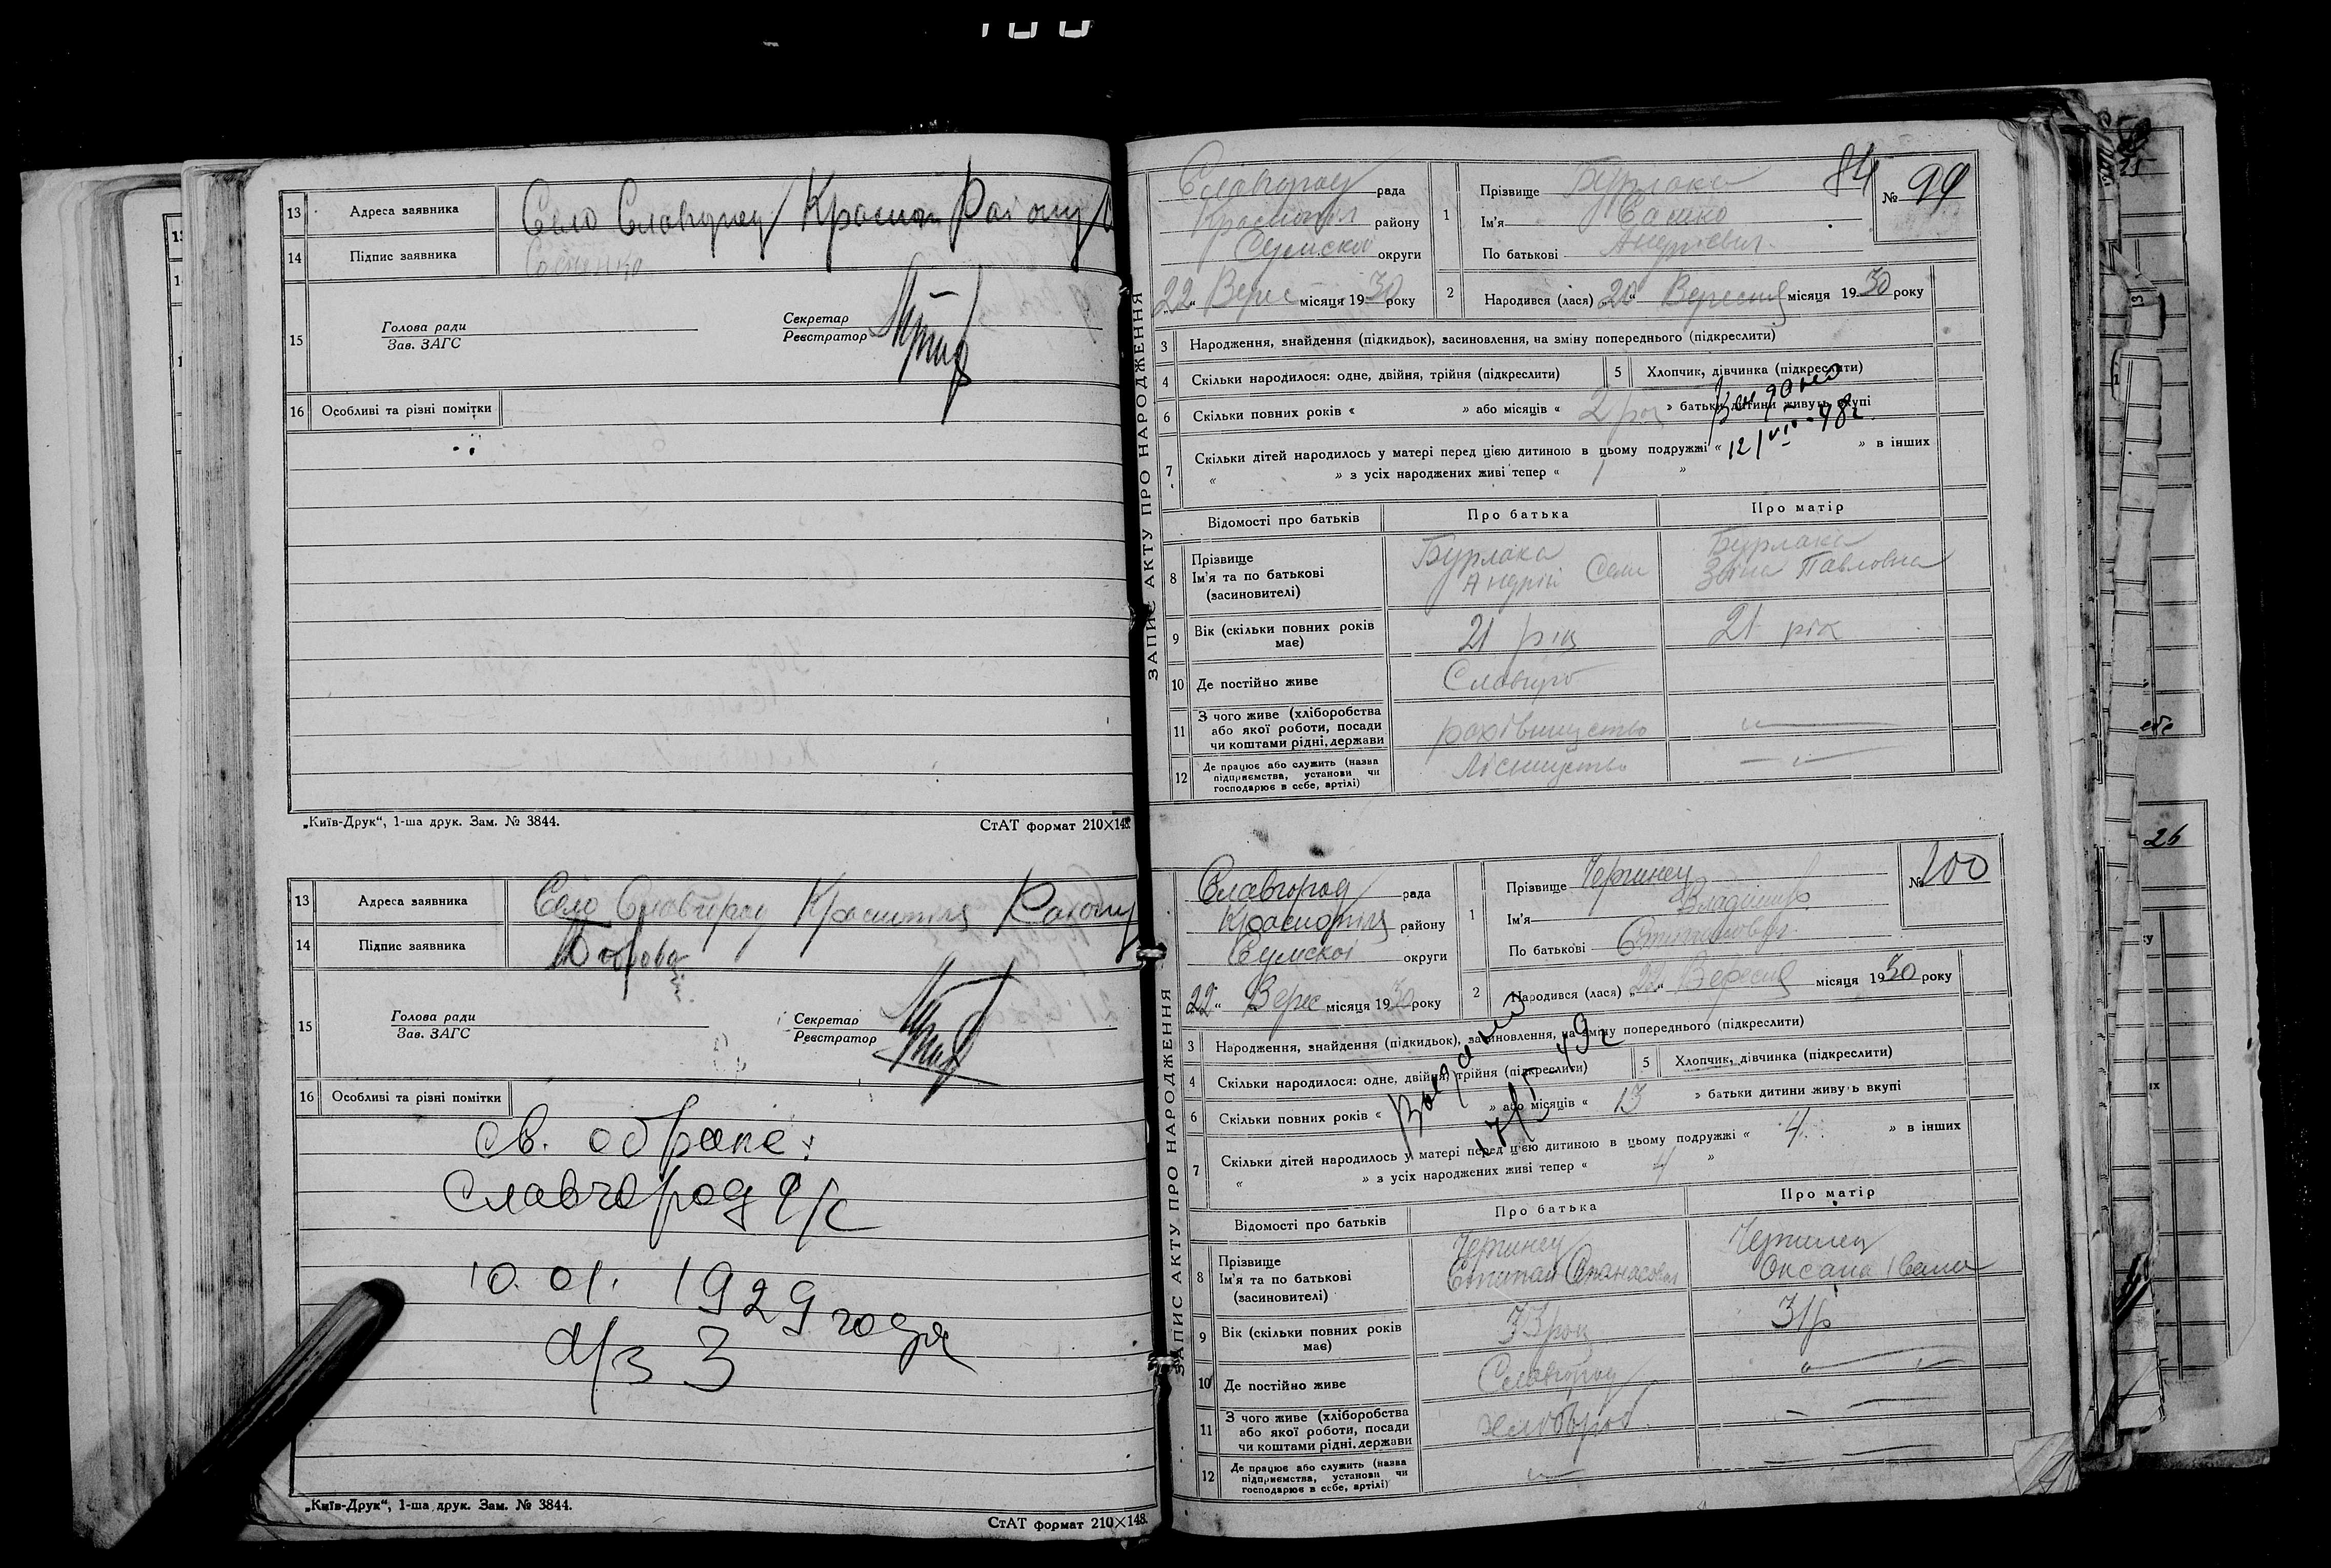 100
13 Адреса заявника Село Славгород Красноп Району
14 Підпис заявника
15 Голова ради
Зав. ЗАГС
Секретар
Реєстратор
16 Особливі та різні помітки
„Київ-Друк“, 1-ша друк. Зам. № 3844. СтАТ формат 210×148.
13 Адреса заявника Село Славгород Краснопіля Району
14 Підпис заявника
15 Голова ради
Зав. ЗАГС
Секретар
Реєстратор
16 Особливі та різні помітки
св. о браке:
Славгород с/с
10.01. 1929 года
а/з 3
„Київ-Друк“, 1-ша друк. Зам. № 3844.
СтАТ формат 210×148.
ЗАПИС АКТУ ПРО НАРОДЖЕННЯ
Славгород рада
Краснопіл району
Сумскої округи
22 „ Верес місяця 1930 року
1 Прізвище Бурлака
84
№ 99
Ім'я Сашко
По батькові Андрієвич
2 Народився (лася) „20“ Вересня місяця 1930 року
3 Народження, знайдення (підкидьок), засиновлення, на зміну попереднього (підкреслити)
4 Скільки народилося: одне, двійня, трійня (підкреслити)
5 Хлопчик, дівчинка (підкреслити)
6 Скільки повних років « » або місяців « 2 рок » батьки дитини живуть вкупі
7 Скільки дітей народилось у матері перед цією дитиною в цьому подружжі « » в інших
« » з усіх народжених живі тепер « 1 »
12/VII-48г
Відомості про батьків Про батька Про матір
8 Прізвище
Ім'я та по батькові
(засиновителі)
Бурлака
Андрій Сем
Бурлака
Павловна
9 Вік (скільки повних років має) 21 рік 21 рік
10 Де постійно живе Славгоро
11 З чого живе (хліборобства
або якої роботи, посади
чи коштами рідні, держави
рахівництво
12 Де працює або служить (назва
підприємства, установи чи
господарює в себе, артілі)
Лісництво
ЗАПИС АКТУ ПРО НАРОДЖЕННЯ
Славгород рада
Краснопіля району
Сумскої округи
22 „ Верес місяця 1930 року
1 Прізвище Чернинец
№ 100
Ім'я Владимир
По батькові Степанович
2 Народився (лася) „22“ Вересня місяця 1930 року
3 Народження, знайдення (підкидьок), засиновлення, на зміну попереднього (підкреслити)
4 Скільки народилося: одне, двійня, трійня (підкреслити)
5 Хлопчик, дівчинка (підкреслити)
6 Скільки повних років « » або місяців « 13 » батьки дитини живуть вкупі
7 Скільки дітей народилось у матері перед цією дитиною в цьому подружжі « 4 » в інших
« » з усіх народжених живі тепер « 4 »
Выдано
17/I-49г
Відомості про батьків Про батька Про матір
8 Прізвище
Ім'я та по батькові
(засиновителі)
Чернинец
Степан Опанасович
Чернинец
Оксана Іван
9 Вік (скільки повних років має) 33 рок 31 р
10 Де постійно живе Славгород
11 З чого живе (хліборобства
або якої роботи, посади
чи коштами рідні, держави
хлібороб
12 Де працює або служить (назва
підприємства, установи чи
господарює в себе, артілі)